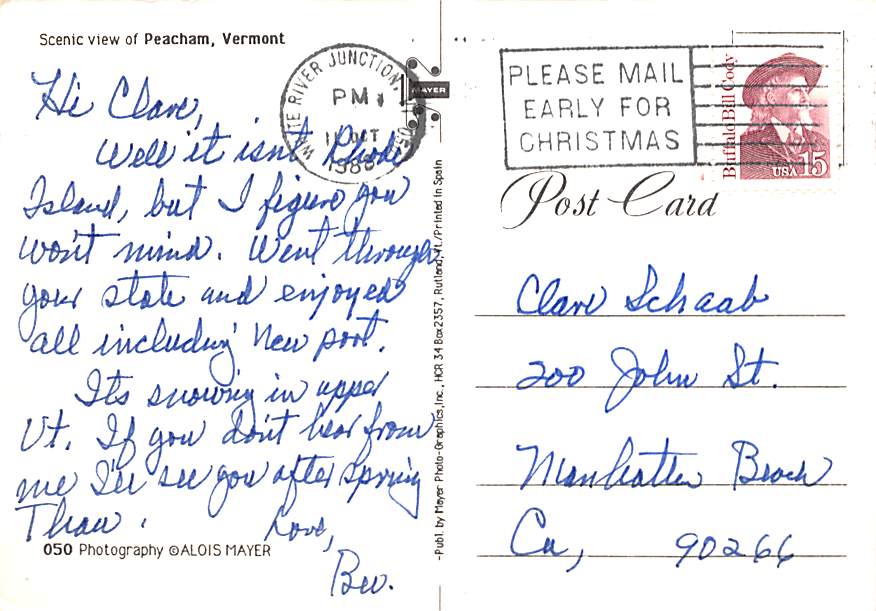 Scenic view of Peacham, Vermont
Hi Clare,
Well it isn't Rhode
Island, but I figure you
won't mind. Went through
your state and enjoyed
all including New port.
Its snowing in upper
Vt. If you don't hear from
me I'll see you after spring
Thaw.
Love,
Bev.
050 Photography ©ALOIS MAYER
WHITE RIVER JUNCTION
PM
11 OCT
1988
MAYER
-Publ. by Mayer Photo-Graphics, Inc., HCR 34 Box 2357, Rutland, Vt./Printed in Spain
PLEASE MAIL
EARLY FOR
CHRISTMAS
Buffalo Bill Cody
USA 15
Post Card
Clare Schaab
200 John St.
Manhatten Beach
Ca, 90266